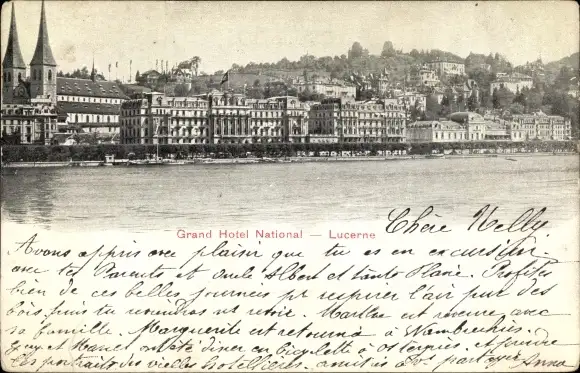 Grand Hotel National — Lucerne
Chère Nelly.
Avons appris avec plaisir que tu es en excursion
avec tes Parents et oncle Albert et tante Marie. Profitez
bien de ces belles journées pr respirer l'air pur des
bois puis tu reviendras nt revoir. Marthe est revenue avec
sa famille. Marguerite est retourné à
et Marcel ont été dîner en bicyclette à et prendre
les portraits des vieilles hotellières. amitiés à vs partager Anna